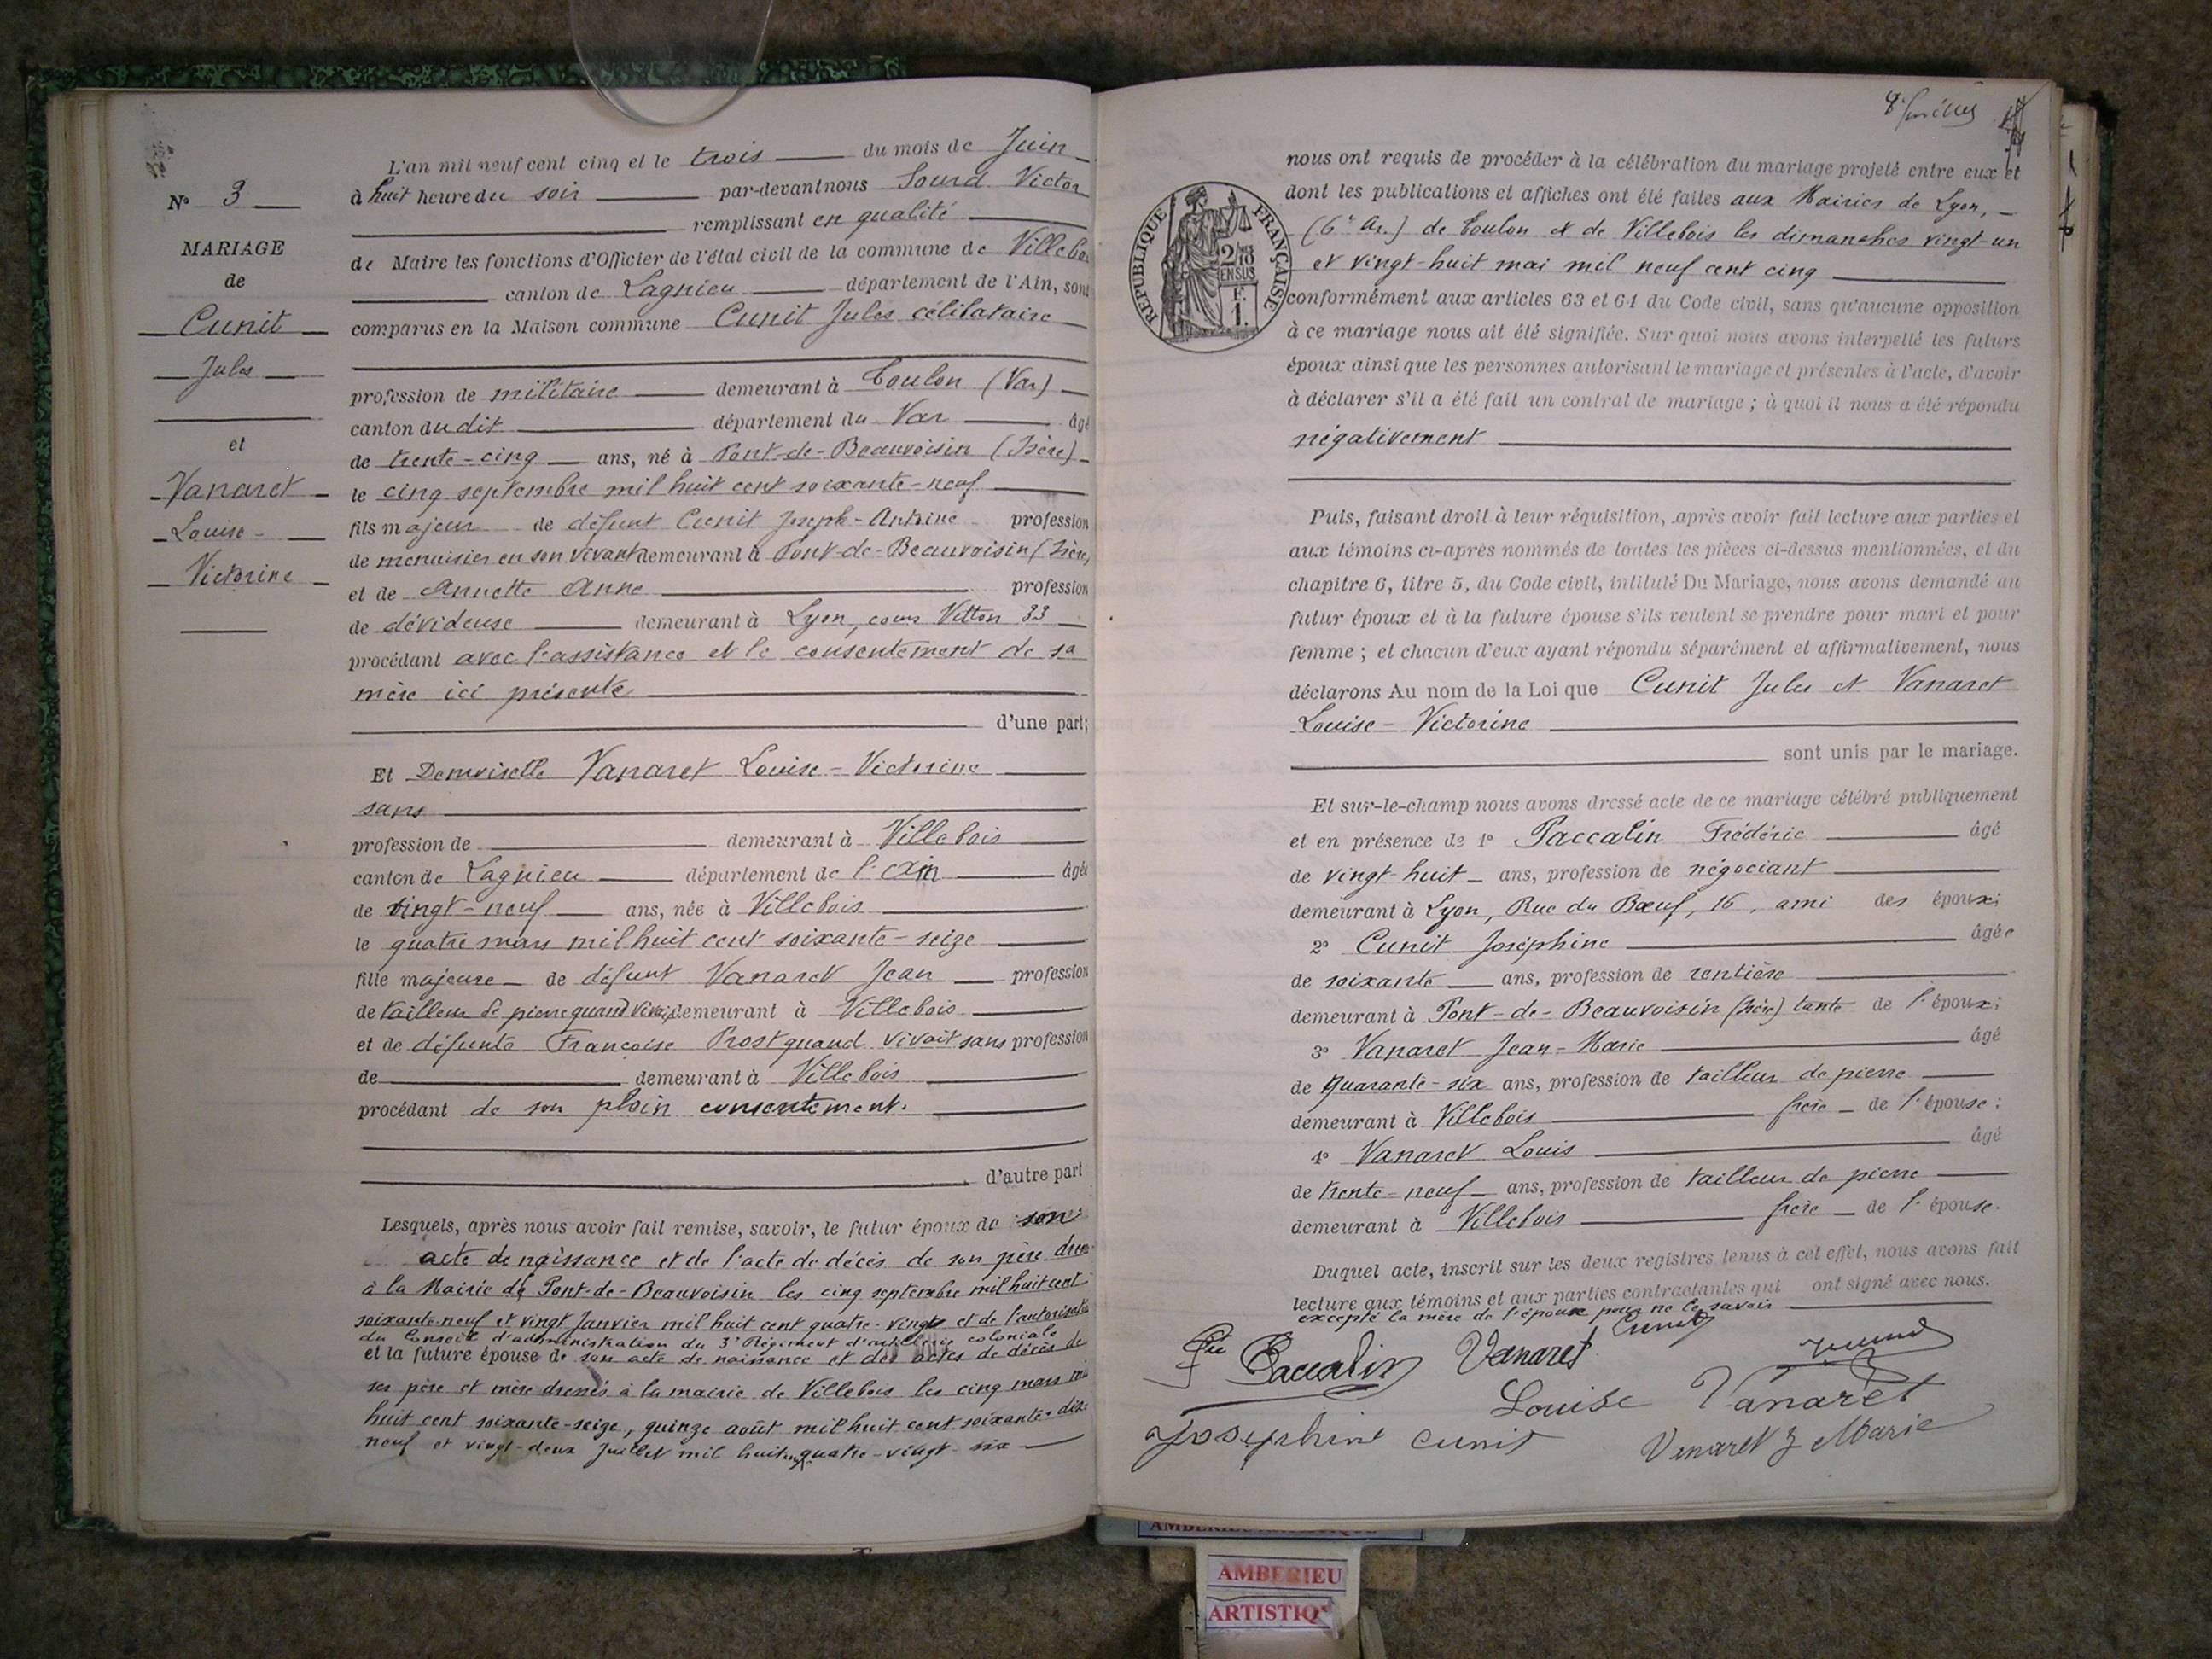 L'an mil neuf cent cinq et le trois du mois de Juin
à huit heure du soir par-devant nous Sourd Victor
remplissant en qualité
de Maire les fonctions d'Officier de l'état civil de la commune de Villebois
canton de Lagnieu département de l'Ain, sont
comparus en la Maison commune Cunit Jules célibataire
profession de militaire demeurant à Toulon (Var)
canton du dit département du Var âgé
de trente-cinq ans, né à Pont-de-Beauvoisin (Isère)
le cinq septembre mil huit cent soixante-neuf
fils majeur de défunt Cunit Joseph-Antoine profession
de menuisier en son vivant demeurant à Pont-de-Beauvoisin (Isère)
et de Annette Anne profession
de dévideuse demeurant à Lyon, cours Vitton 33
procédant avec l'assistance et le consentement de sa
mère ici présente
d'une part;
Et Demoiselle Vanaret Louise-Victorine
sans
profession de demeurant à Villebois
canton de Lagnieu département de l'Ain âgée
de vingt-neuf ans, née à Villebois
le quatre mars mil huit cent soixante-seize
fille majeure de défunt Vanaret Jean profession
de tailleur de pierre quand vivait demeurant à Villebois
et de défunte Françoise Prost quand vivait sans profession
de demeurant à Villebois
procédant de son plein consentement.
d'autre part
Lesquels, après nous avoir fait remise, savoir, le futur époux de son
acte de naissance et de l'acte de décès de son père
à la Mairie de Pont-de-Beauvoisin les cinq septembre mil huit cent
soixante-neuf et vingt Janvier mil huit cent quatre-vingt et de l'autorisation
du Conseil d'administration du 3e Régiment d'artillerie coloniale
et la future épouse de son acte de naissance et des actes de décès de
ses père et mère dressés à la mairie de Villebois les cinq mars mil
huit cent soixante-seize, quinze août mil huit cent soixante-dix-
neuf et vingt-deux Juillet mil huit cent quatre-vingt-six
No 3
MARIAGE
de
Cunit
Jules
et
Vanaret
Louise-
Victorine
nous ont requis de procéder à la célébration du mariage projeté entre eux et
dont les publications et affiches ont été faites aux Mairies de Lyon,
(6e Ar.) de Toulon et de Villebois les dimanches vingt-un
et vingt-huit mai mil neuf cent cinq
conformément aux articles 63 et 64 du Code civil, sans qu'aucune opposition
à ce mariage nous ait été signifiée. Sur quoi nous avons interpellé les futurs
époux ainsi que les personnes autorisant le mariage et présentes à l'acte, d'avoir
à déclarer s'il a été fait un contrat de mariage ; à quoi il nous a été répondu
négativement
Puis, faisant droit à leur réquisition, après avoir fait lecture aux parties et
aux témoins ci-après nommés de toutes les pièces ci-dessus mentionnées, et du
chapitre 6, titre 5, du Code civil, intitulé Du Mariage, nous avons demandé au
futur époux et à la future épouse s'ils veulent se prendre pour mari et pour
femme ; et chacun d'eux ayant répondu séparément et affirmativement, nous
déclarons Au nom de la Loi que Cunit Jules et Vanaret
Louise-Victorine
sont unis par le mariage.
Et sur-le-champ nous avons dressé acte de ce mariage célébré publiquement
et en présence de 1o Paccalin Frédéric âgé
de vingt huit ans, profession de négociant
demeurant à Lyon, Rue du Bœuf, 16, ami des époux;
2o Cunit Joséphine âgée
de soixante ans, profession de rentière
demeurant à Pont-de-Beauvoisin (Isère) tante de l'époux;
3o Vanaret Jean-Marie âgé
de quarante-six ans, profession de tailleur de pierre
demeurant à Villebois frère de l'épouse;
4o Vanaret Louis âgé
de trente-neuf ans, profession de tailleur de pierre
demeurant à Villebois frère de l'épouse.
Duquel acte, inscrit sur les deux registres tenus à cet effet, nous avons fait
lecture aux témoins et aux parties contractantes qui ont signé avec nous.
excepté la mère de l'époux pour ne le savoir
Cunit
Paccalin Vanaret
Louise Vanaret
Josephine Cunit
Vanaret J Marie
REPUBLIQUE FRANÇAISE
2/10
EN SUS
F.
1.
AMBERIEU
ARTISTIQ